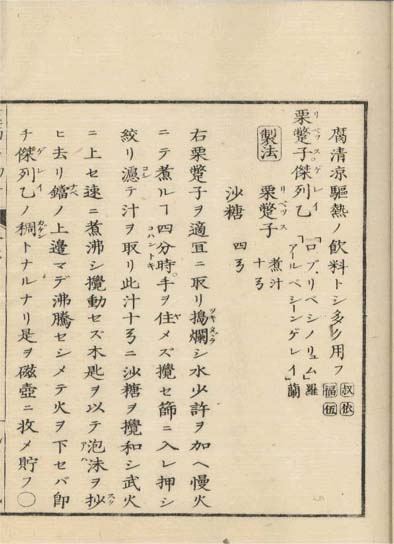 腐清涼驅熱ノ飲料トシ多ク用フ 叔依 福伍
栗蹩子傑列乙 「ロブ、リベシノリュム」羅 「アールベシーンゲレイ」蘭
製法 栗蹩子 煮汁 十ゟ
沙糖 四ゟ
右栗蹩子ヲ適宜ニ取リ搗爛シ水少許ヲ加ヘ慢火
ニテ煮ルヿ四分時手ヲ住メズ攪セ篩ニ入レ押シ
絞リ濾テ汁ヲ取リ此汁十ゟニ沙糖ヲ攪和シ武火
ニ上セ速ニ煮沸シ攪動セズ木匙ヲ以テ泡沫ヲ抄
ヒ去リ鐺ノ上邊マデ沸騰セシメテ火ヲ下セバ即
チ傑列乙ノ稠トナルナリ是ヲ磁壺ニ收メ貯フ〇